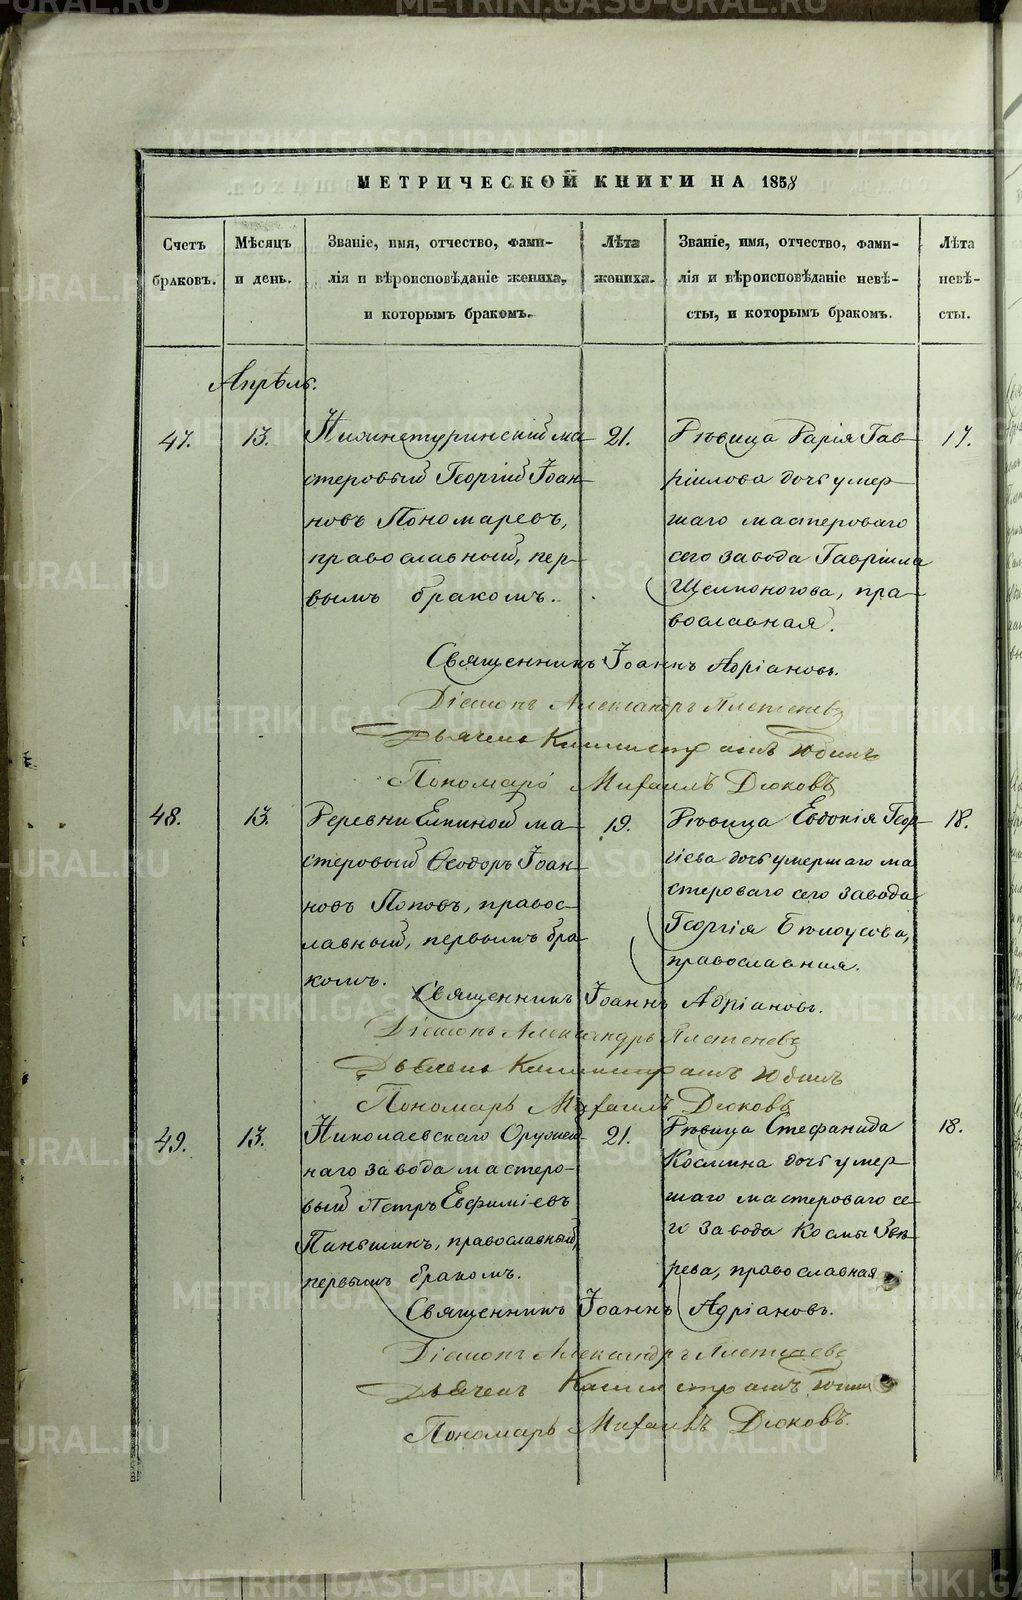 МЕТРИЧЕСКОЙ КНИГИ НА 1858
Счетъ браковъ.
Мѣсяцъ и день.
Званіе, имя, отчество, фами-
лія и вѣроисповѣданіе жениха,
и которымъ бракомъ.
Лѣта жениха.
Званіе, имя, отчество, фами-
лія и вѣроисповѣданіе невѣ-
сты, и которымъ бракомъ.
Лѣта невѣ-
сты.
Апрѣль.
47.
13.
Нижнетуринскій ма-
стеровый Георгій Іоан-
новъ Пономаревъ,
православный, пер-
вымъ бракомъ.
21.
Дѣвица Дарія Гав-
ріилова дочь умер-
шаго мастероваго
сего завода Гавріила
Щелконогова, пра-
вославная.
17.
Священникъ Іоаннъ Адріановъ.
Діаконъ Александръ Плетеневъ
Дьячекъ Калистратъ Юдинъ
Пономарь Михаилъ Дюковъ
48.
13.
Деревни Елкиной ма-
стеровый Ѳеодоръ Іоан-
новъ Поповъ, правос-
лавный, первымъ бра-
комъ.
19.
Дѣвица Евдокія Геор-
гіева дочь умершаго ма-
стероваго сего завода
Георгія Бѣлоусова,
православная.
18.
Священникъ Іоаннъ Адріановъ.
Діаконъ Александръ Плетеневъ
Дьячекъ Калистратъ Юдинъ
Пономарь Михаилъ Дюковъ
49.
13.
Николаевскаго Оружей-
наго завода мастеро-
вый Петръ Евфиміевъ
Паньшинъ, православный,
первымъ бракомъ.
21.
Дѣвица Стефанида
Космина дочь умер-
шаго мастероваго се-
го завода Космы Звѣ-
рева, православная
18.
Священникъ Іоаннъ Адріановъ.
Діаконъ Александръ Плетеневъ
Дьячекъ Калистратъ Юдинъ
Пономарь Михаилъ Дюковъ.
METRIKI.GASO-URAL.RU